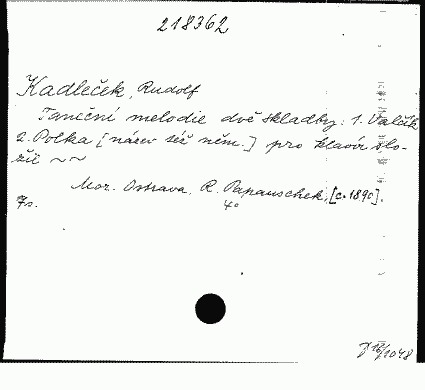 218362
Kadleček, Rudolf
Taneční melodie dvě skladby: 1. Valčík
2. Polka [název též něm.] pro klavír slo-
žil ~~
Mor. Ostrava, R. Papauschek, [c. 1890].
7s. 4°